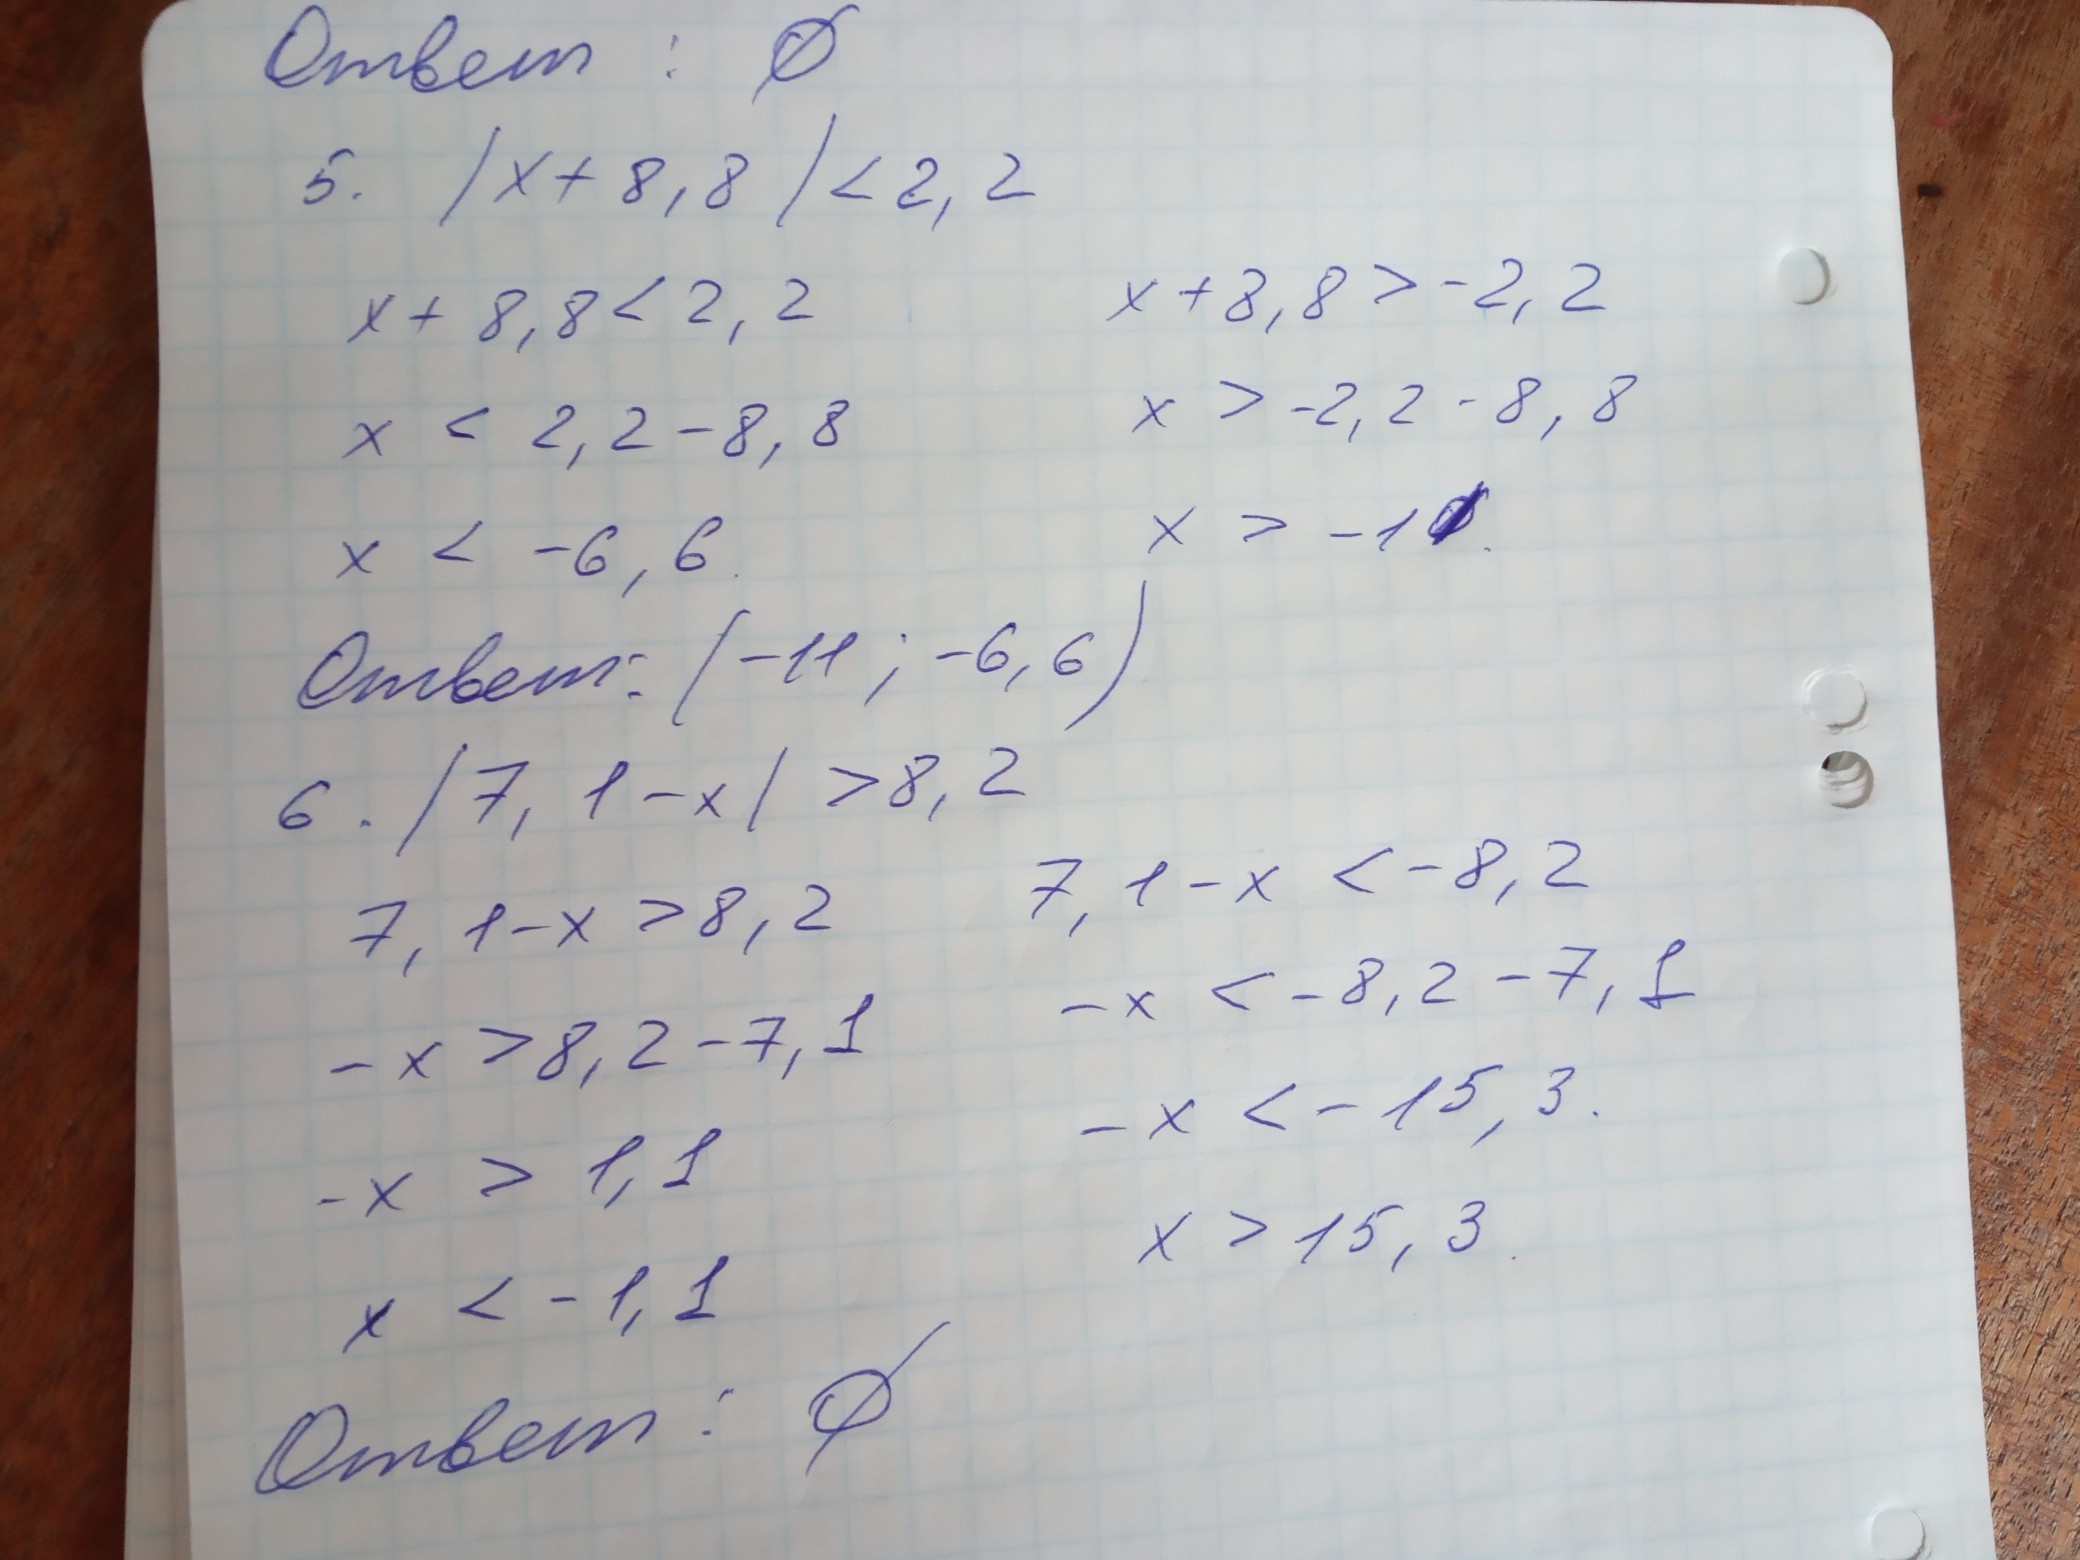 Ответ: Ø
5. |x+8,8|<2,2
x+8,8<2,2 x+8,8>-2,2
x < 2,2-8,8 x >-2,2-8,8
x < -6,6. x > -11.
Ответ: (-11; -6,6)
6. |7,1-x| >8,2
7,1-x >8,2 7,1-x <-8,2
-x >8,2-7,1 -x <-8,2-7,1
-x > 1,1 -x <-15,3.
x < -1,1 x > 15,3.
Ответ: Ø